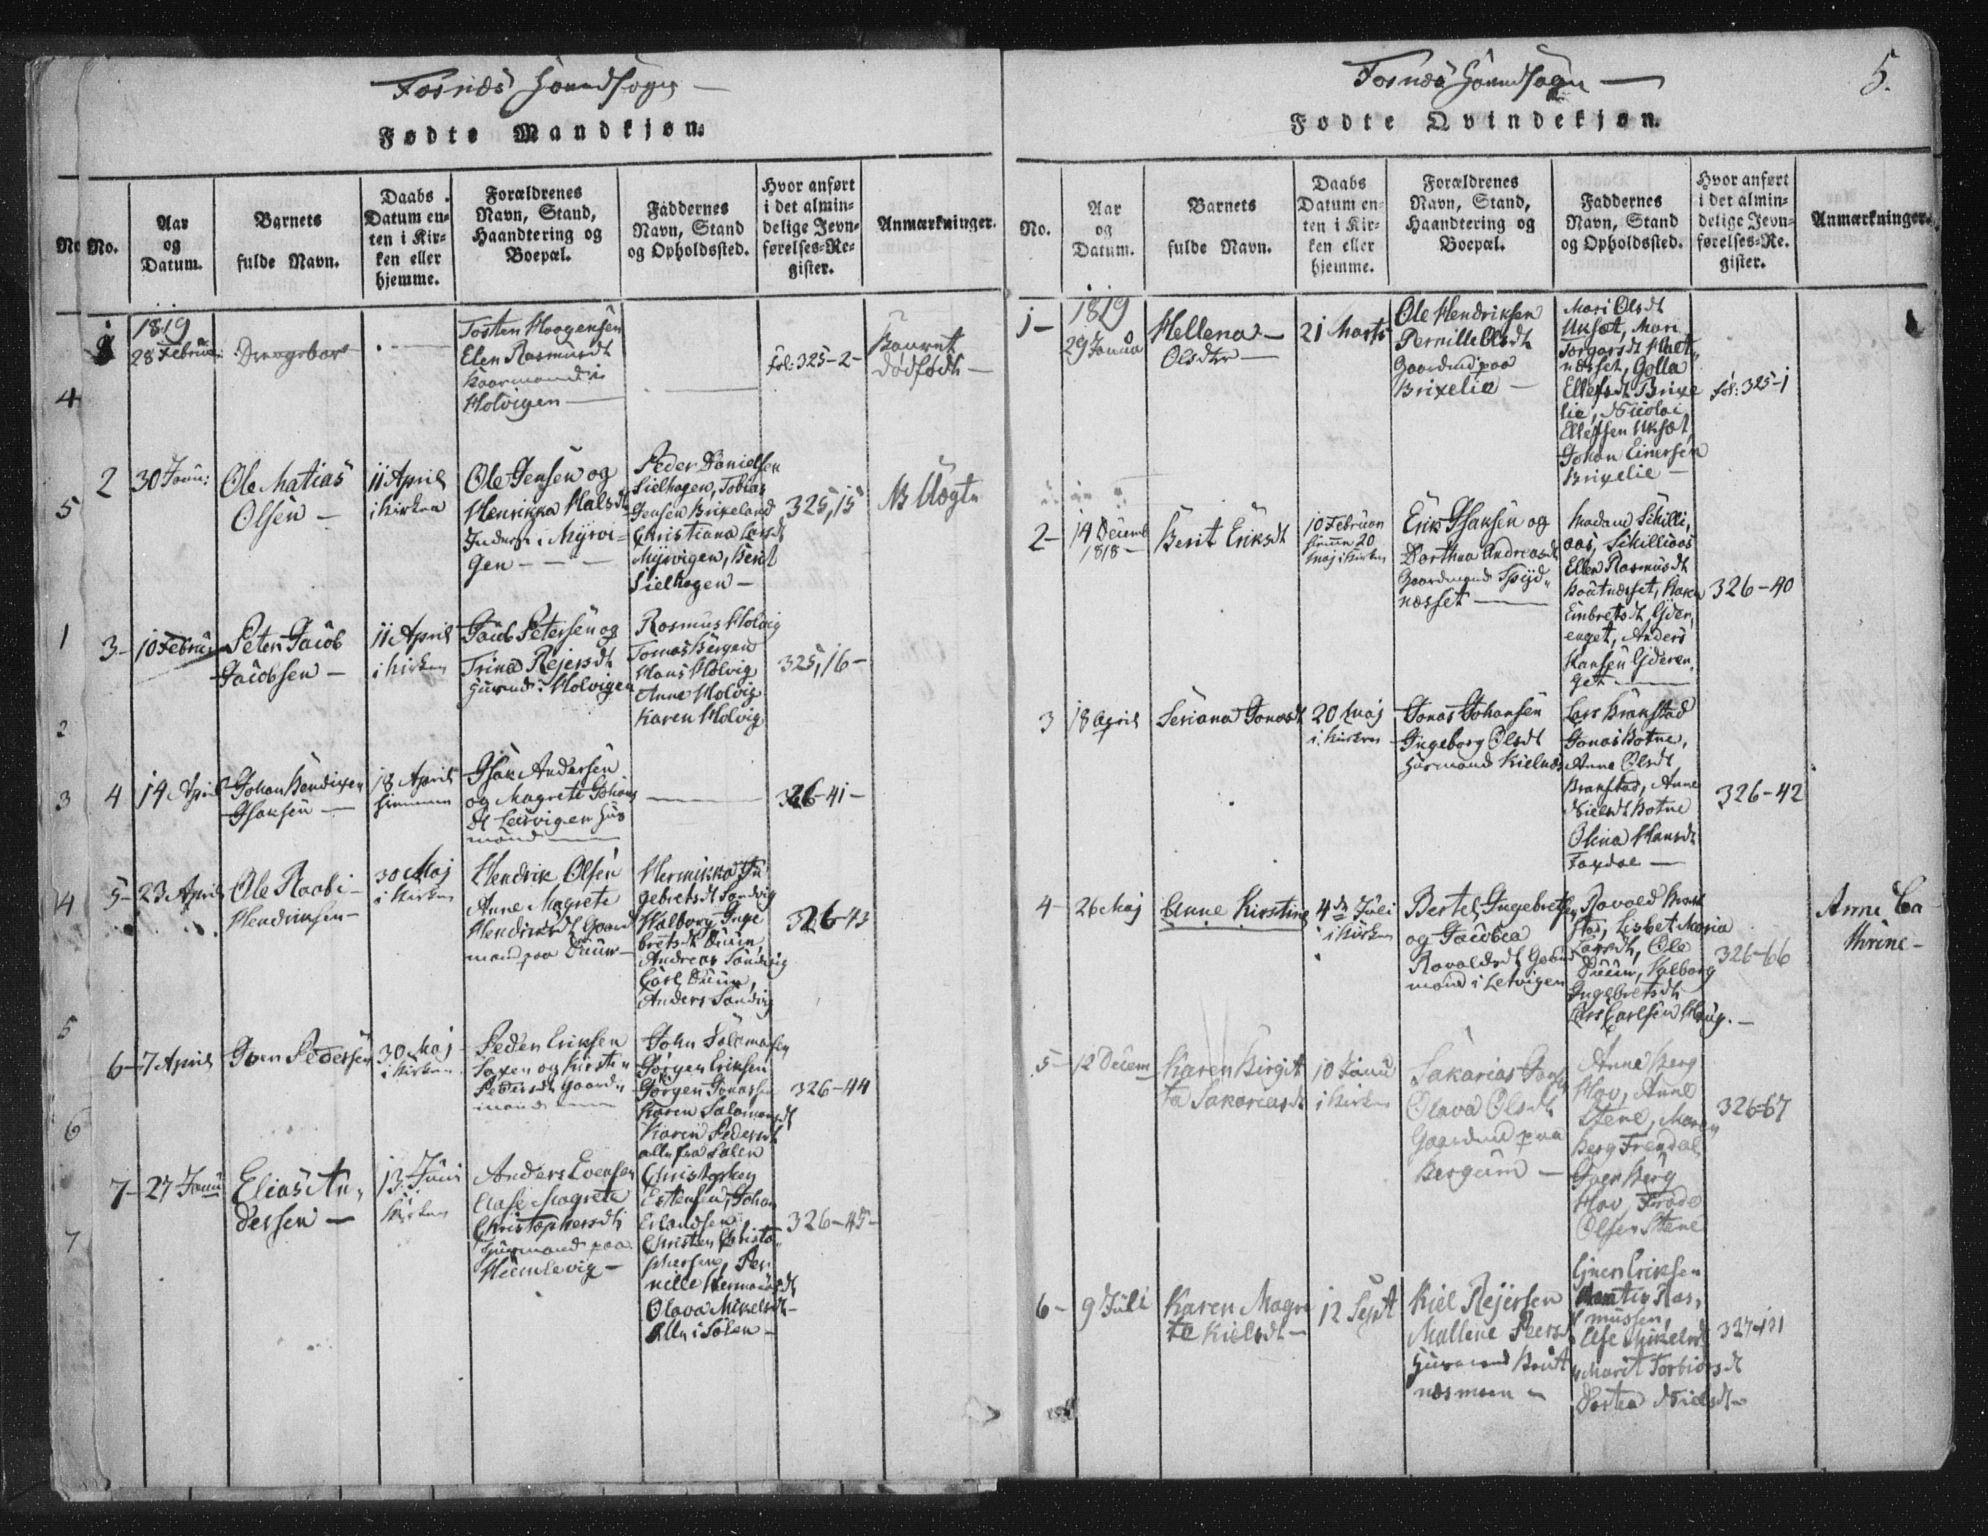 Fosnæs Hovedsogn —
Fødte Mandkjøn.
No.
No.
Aar
og
Datum.
Barnets
fulde Navn.
Daabs
Datum en-
ten i Kir-
ken eller
hjemme.
Forældrenes
Navn, Stand,
Haandtering og
Boepæl.
Faddernes
Navn, Stand
og Opholdssted.
Hvor anført
i det almin-
delige Jevn-
førelses-Re-
gister.
Anmærkninger.
1819
28 Februar
Drengebarn
Tosten Haagensen
Elen Rasmusdt
Holvigen —
fol: 325-2-
Barnet
dødfødt —
2
30 Janu:
Ole Matias
Olsen —
11 April
i Kirken
Ole Jensen og
Henrikka Halsdt
Myrvi-
gen — — —
Peder Danielsen
Sielhagen, Tobias
Jensen Brixeland
Christiana Larsdt
Myrvigen, Berit
Sielhagen —
325, 15
NB Uægte
3-
10 Febru
Peter Jacob
Jacobsen —
11 April
i Kirken
Jacob Petersen og
Trina Rejersdt
Holvigen
Rasmus Holvig
Tomas Bergen
Hans Holvig
Anne Holvig
Karen Holvig
325, 16 —
4
14 April
Johan Bendixen
Isaksen —
18 April
hiemme
Isak Andersen
og Magrete Johans
dt Leirvigen Hus
mand
326-41-
5-
23 April
Ole Raabi-
Hendriksen-
30 Maj
i Kirken
Hendrik Olsen
Anne Magrete
Hendriksdt Gaard
mand paa Duun-
Henrikka In
gebretsdt Sandvig
Walborg Inge
bretsdt Duun
Andreas Sandvig
Carl Duun,
Anders Sandvig
326-43
6-
7 April
Iver Pedersen
30 Maj
i Kirken
Peder Eriksen
Saxen og Kirsten
Pedersdt Gaard-
mand
John Salomonsen
Jørgen Eriksen
Jørgen Jonassen
Karen Salomonsdt
Karen Pedersdt
alle fra Salen
326-44
7-
27 Janu
Elias An-
dersen —
13 Juni
i
Kirken
Anders Evensen
Else Magrete
Christophersdt
Husmand paa
Heimlevig —
Christopher
Estensen, Johan
Erlandsen
Christen Christo-
phersen, Per-
nille Hermansdt
Olava Mikelsdt-
Alle i Salen-
326-45-
4
5
1
2
3
4
5
6
7
Fosnæs Hovedsogn —
5.
Fødte Qvindekjøn.
No.
Aar
og
Datum.
Barnets
fulde Navn.
Daabs
Datum en-
ten i Kir-
ken eller
hjemme.
Forældrenes
Navn, Stand,
Haandtering og
Boepæl.
Faddernes
Navn, Stand
og Opholdssted.
Hvor anført
i det almin-
delige Jevn-
førelses-Re-
gister.
Anmærkninger.
1-
1819
29 Janua
Hellena —
Olsdtr —
21 Marts
Ole Hendriksen
Pernille Olsdt
Gaardmd paa
Brixelie —
Mari Olsdt
Uksæt, Mari
Torgarsdt
næsset, Golla
Ellefsdt Brixe
lie, Nicolai
Ellefsen Uksæt,
Johan Einersen
Brixelie —
fol: 325-1
2-
14 Decemb
1818-
Berit Eriksdt
10 Februar
hiem 20
Maj i Kirken
Erik Isaksen og
Dorthea Andreasdt
Gaardmand Spyd-
næsset —
Madam Schilli-
aas, Schilliaas
Ellen Rasmusdt
Boutnæsset, Karen
Einbretsdt Gjeren-
enget, Anders
Hansen Gjeren-
get —
326-40
3
18 April
Seriana Jonasdt
20 Maj
i Kirken
Jonas Johansen
Ingeborg Olsdt
Husmand Kielnæs
Lars Branstad
Jonas Botne,
Anne Olsdt
Branstad, Anne
Nielsdt Botne
Olina Hansdt
Faxdae —
326-42
4-
26 Maj
Anne Kirstine
4de Juli
i Kirken
Bertel Ingebretsen
og Jacobea
Ravaldsdt
mand i Letvigen
Ravald
Lisbet Maria
Larsdt, Ole
Duun, Valborg
Ingebretsdt
Lars Carlsen Haug. —
326-66
Anne Ca
thrine-
5-
12 Decem
Karen Birgit
ta Sakariasdt
10 Janu
i Kirken
Sakarias Jons
Olava Olsdt
Gaardmd paa
Bergum —
Anne Berg
Hov, Anne
Stene, Maren
Berg Fredal
Iver Berg
Hov, Frode
Olsen Stene
326-67
6-
9 Juli
Karen Magre
te Kielsdt-
12 Sept
Kiel Rejersen
Mallene Peersdt
Husmand Bout
næsmoen —
Giert Eriksen
Ras-
mussen,
Else Mikelsdt
Marit Torbiørsdt
Dortea Nielsdt-
327-131